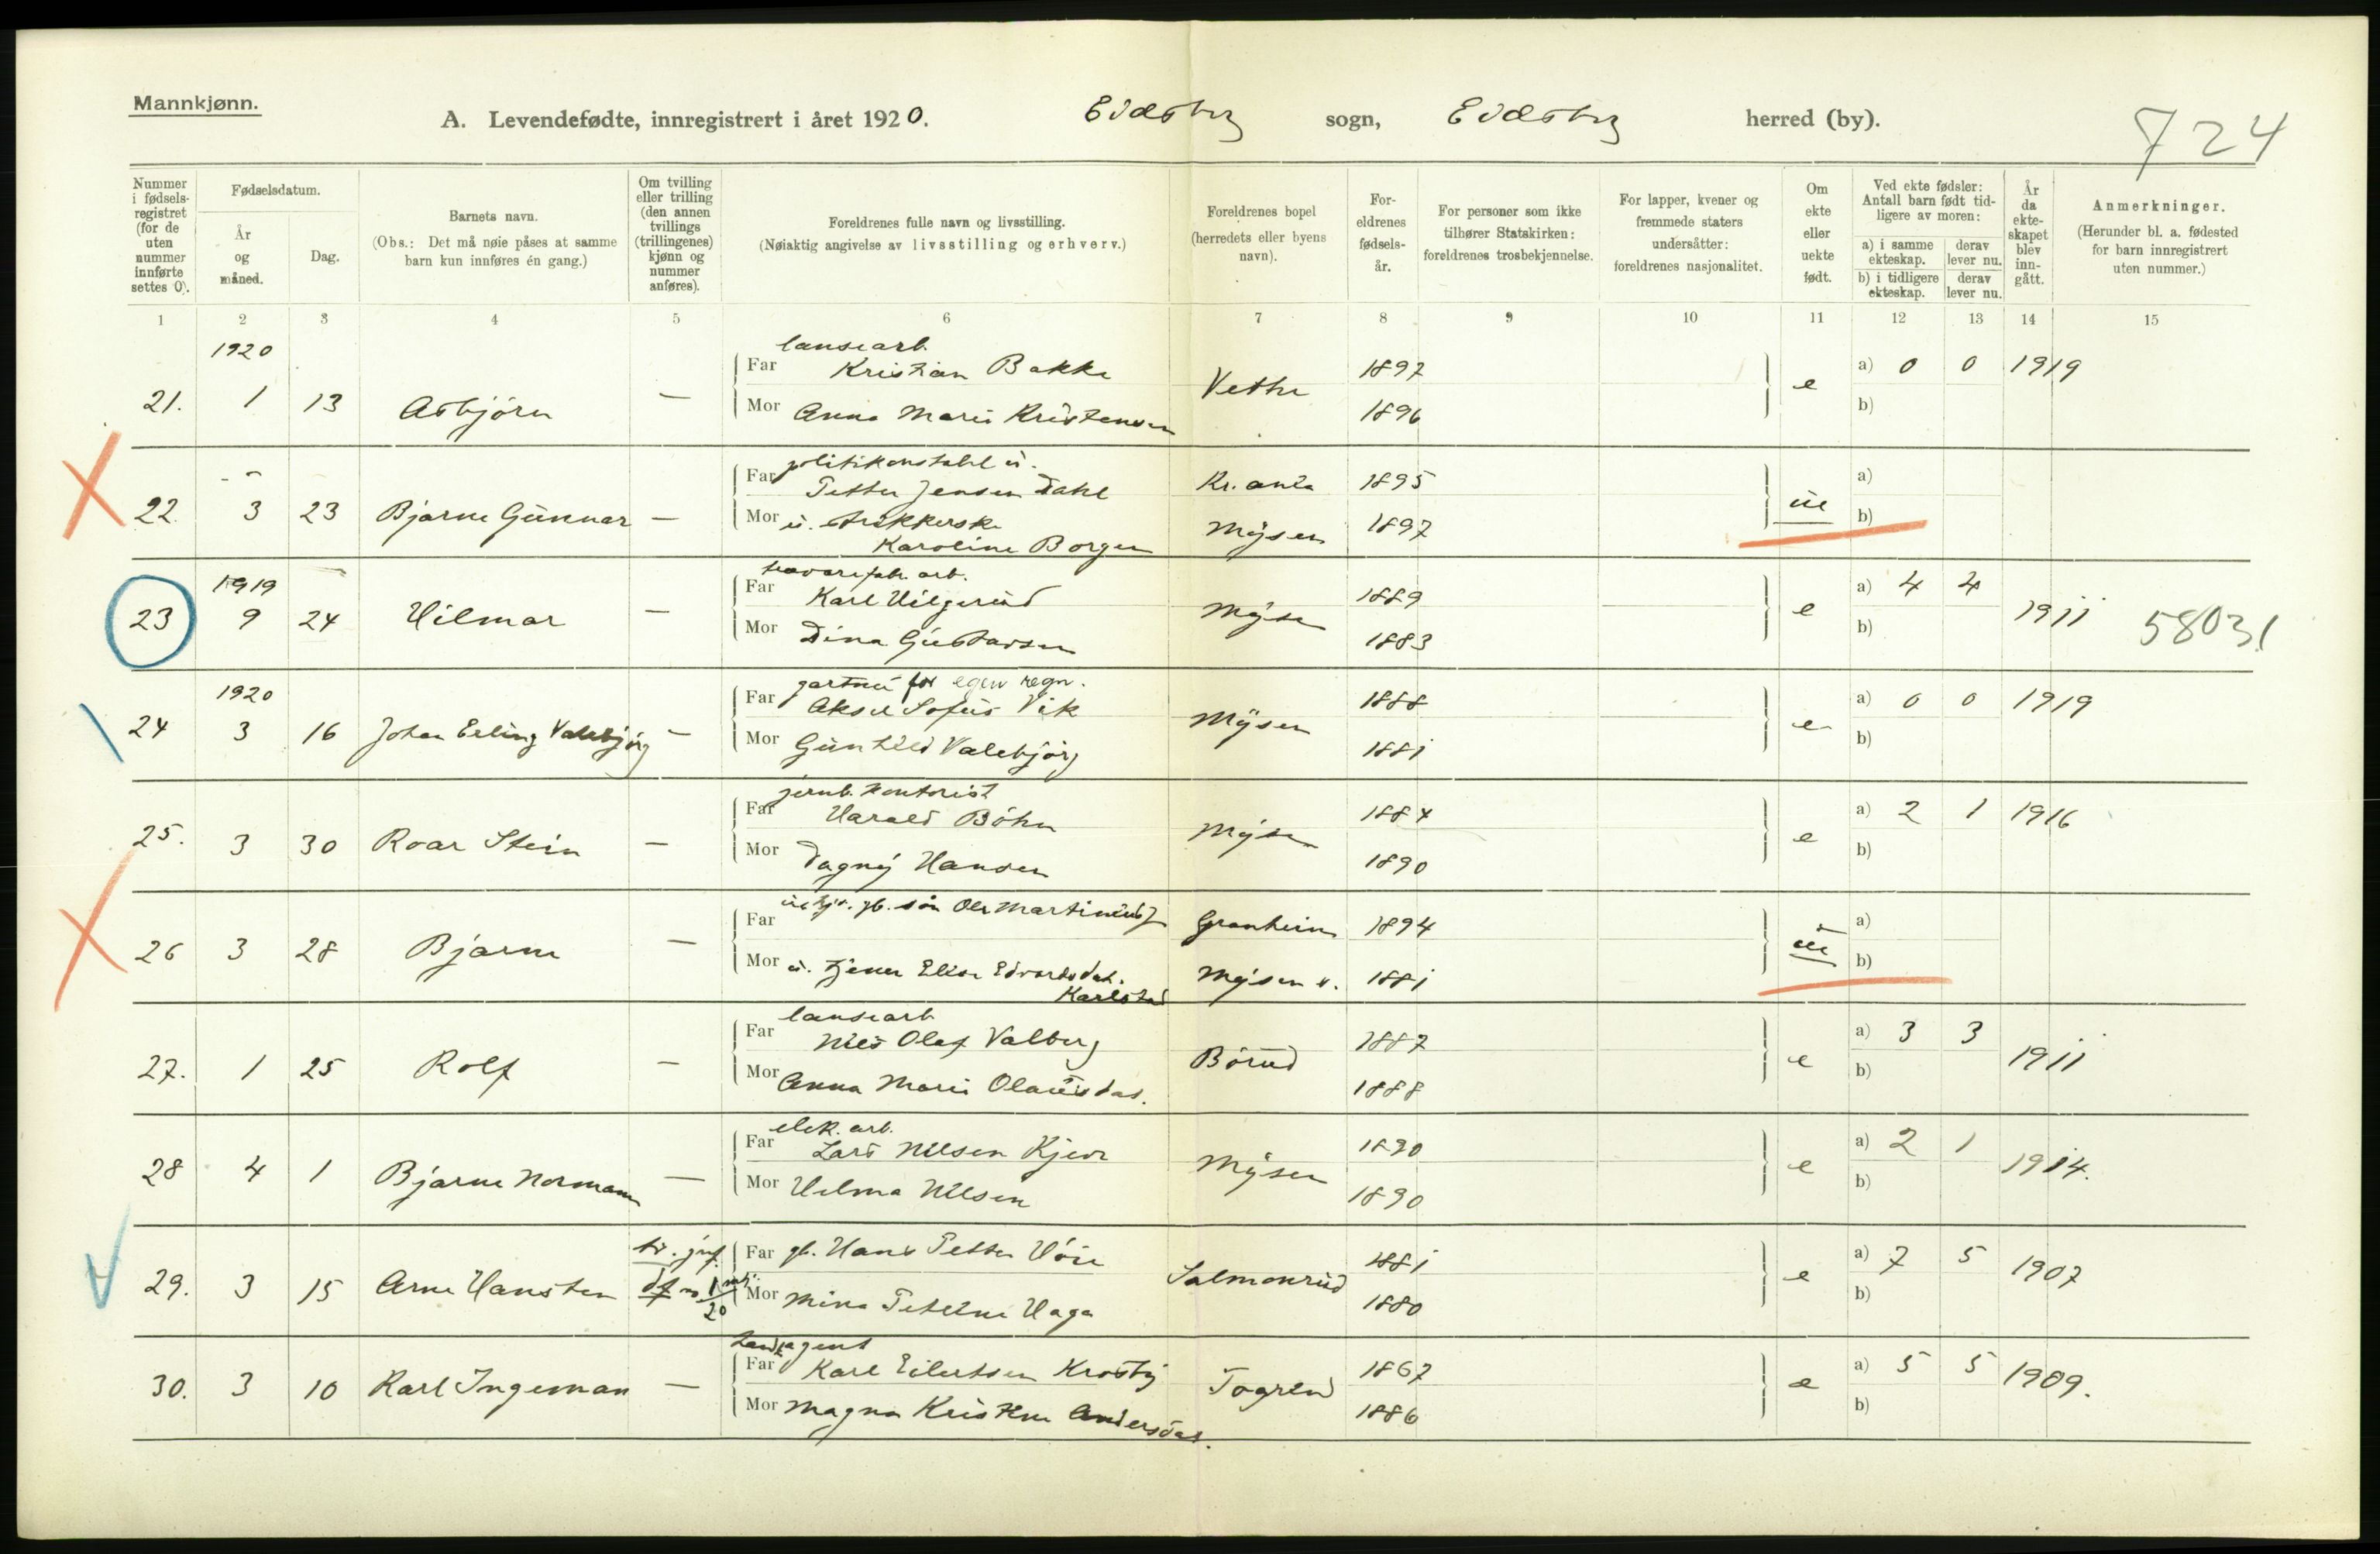 Mannkjønn.
A. Levendefødte, innregistrert i året 1920. Eidsberg sogn, Eidsberg herred (by). 724
Nummer i fødselsregistret (for de uten nummer innførte settes 0).
Fødselsdatum.
År og måned.
Dag.
Barnets navn.
(Obs.: Det må nøie påses at samme barn kun innføres én gang.)
Om tvilling eller trilling (den annen tvillings (trillingenes) kjønn og nummer anføres).
Foreldrenes fulle navn og livsstilling.
(Nøiaktig angivelse av livsstilling og erhverv.)
Foreldrenes bopel (herredets eller byens navn).
Foreldrenes fødselsår.
For personer som ikke tilhører Statskirken: foreldrenes trosbekjennelse.
For lapper, kvener og fremmede staters undersåtter: foreldrenes nasjonalitet.
Om ekte eller uekte født.
Ved ekte fødsler: Antall barn født tidligere av moren:
a) i samme ekteskap. derav lever nu.
b) i tidligere ekteskap. derav lever nu.
År da ekteskapet blev inngått.
Anmerkninger.
(Herunder bl. a. fødested for barn innregistrert uten nummer.)
1 2 3 4 5 6 7 8 9 10 11 12 13 14 15
1920 lausearb.
Far Kristian Bakke 1897 a) 0 0 1919
21. 1 13 Asbjørn — Vethe e
Mor Anna Marie Kristensen 1896 b)
politikonstabel u.
Far Petter Jensen Dahl Kr.ania 1895 a)
22. 3 23 Bjarne Gunnar — ue
Mor u. strikkerske Mysen 1897 b)
Karoline Borgen
1919 trævarefabr. arb.
Far Karl Hilgerud 1889 a) 4 4
23 9 24 Hilmar — Mysen e 1911 58031
Mor Dina Gustavsen 1883 b)
1920 gartner for egen regn.
Far Aksel Sofus Vik 1888 a) 0 0 1919
24 3 16 Johan Erling Valebjørg — Mysen e
Mor Gunhild Valebjørg 1881 b)
jernb. kontorist
Far Harald Bøhn 1884 a) 2 1 1916
25. 3 30 Roar Stein — Mysen e
Mor Dagny Hansen 1890 b)
Far gb. søn Ole Martinius Granheim 1894 a)
26 3 28 Bjarne — ue
Mor u. tjener Elise Edvardsdat. Mysen 1881 b)
Karlstad
lausearb
Far Nils Olaf Valberg 1887 a) 3 3
27. 1 25 Rolf — Børud e 1911
Mor Anna Marie Olausdat. 1888 b)
elek. arb.
Far Lars Nilsen Kjeve 1890 a) 2 1
28 4 1 Bjarne Normann — Mysen e 1914.
Mor Hilma Nilsen 1890 b)
Far gb. Hans Petter Høie 1881 a) 7 5 1907
29. 3 15 Arne Hansten Salmonrud e
Mor Mina Petrine Haga 1880 b)
handagent
Far Karl Eilertsen Krosby 1867 a) 5 5 1909.
30. 3 10 Karl Ingeman — Togrend e
Mor Magna Kristine Andersdat. 1886 b)